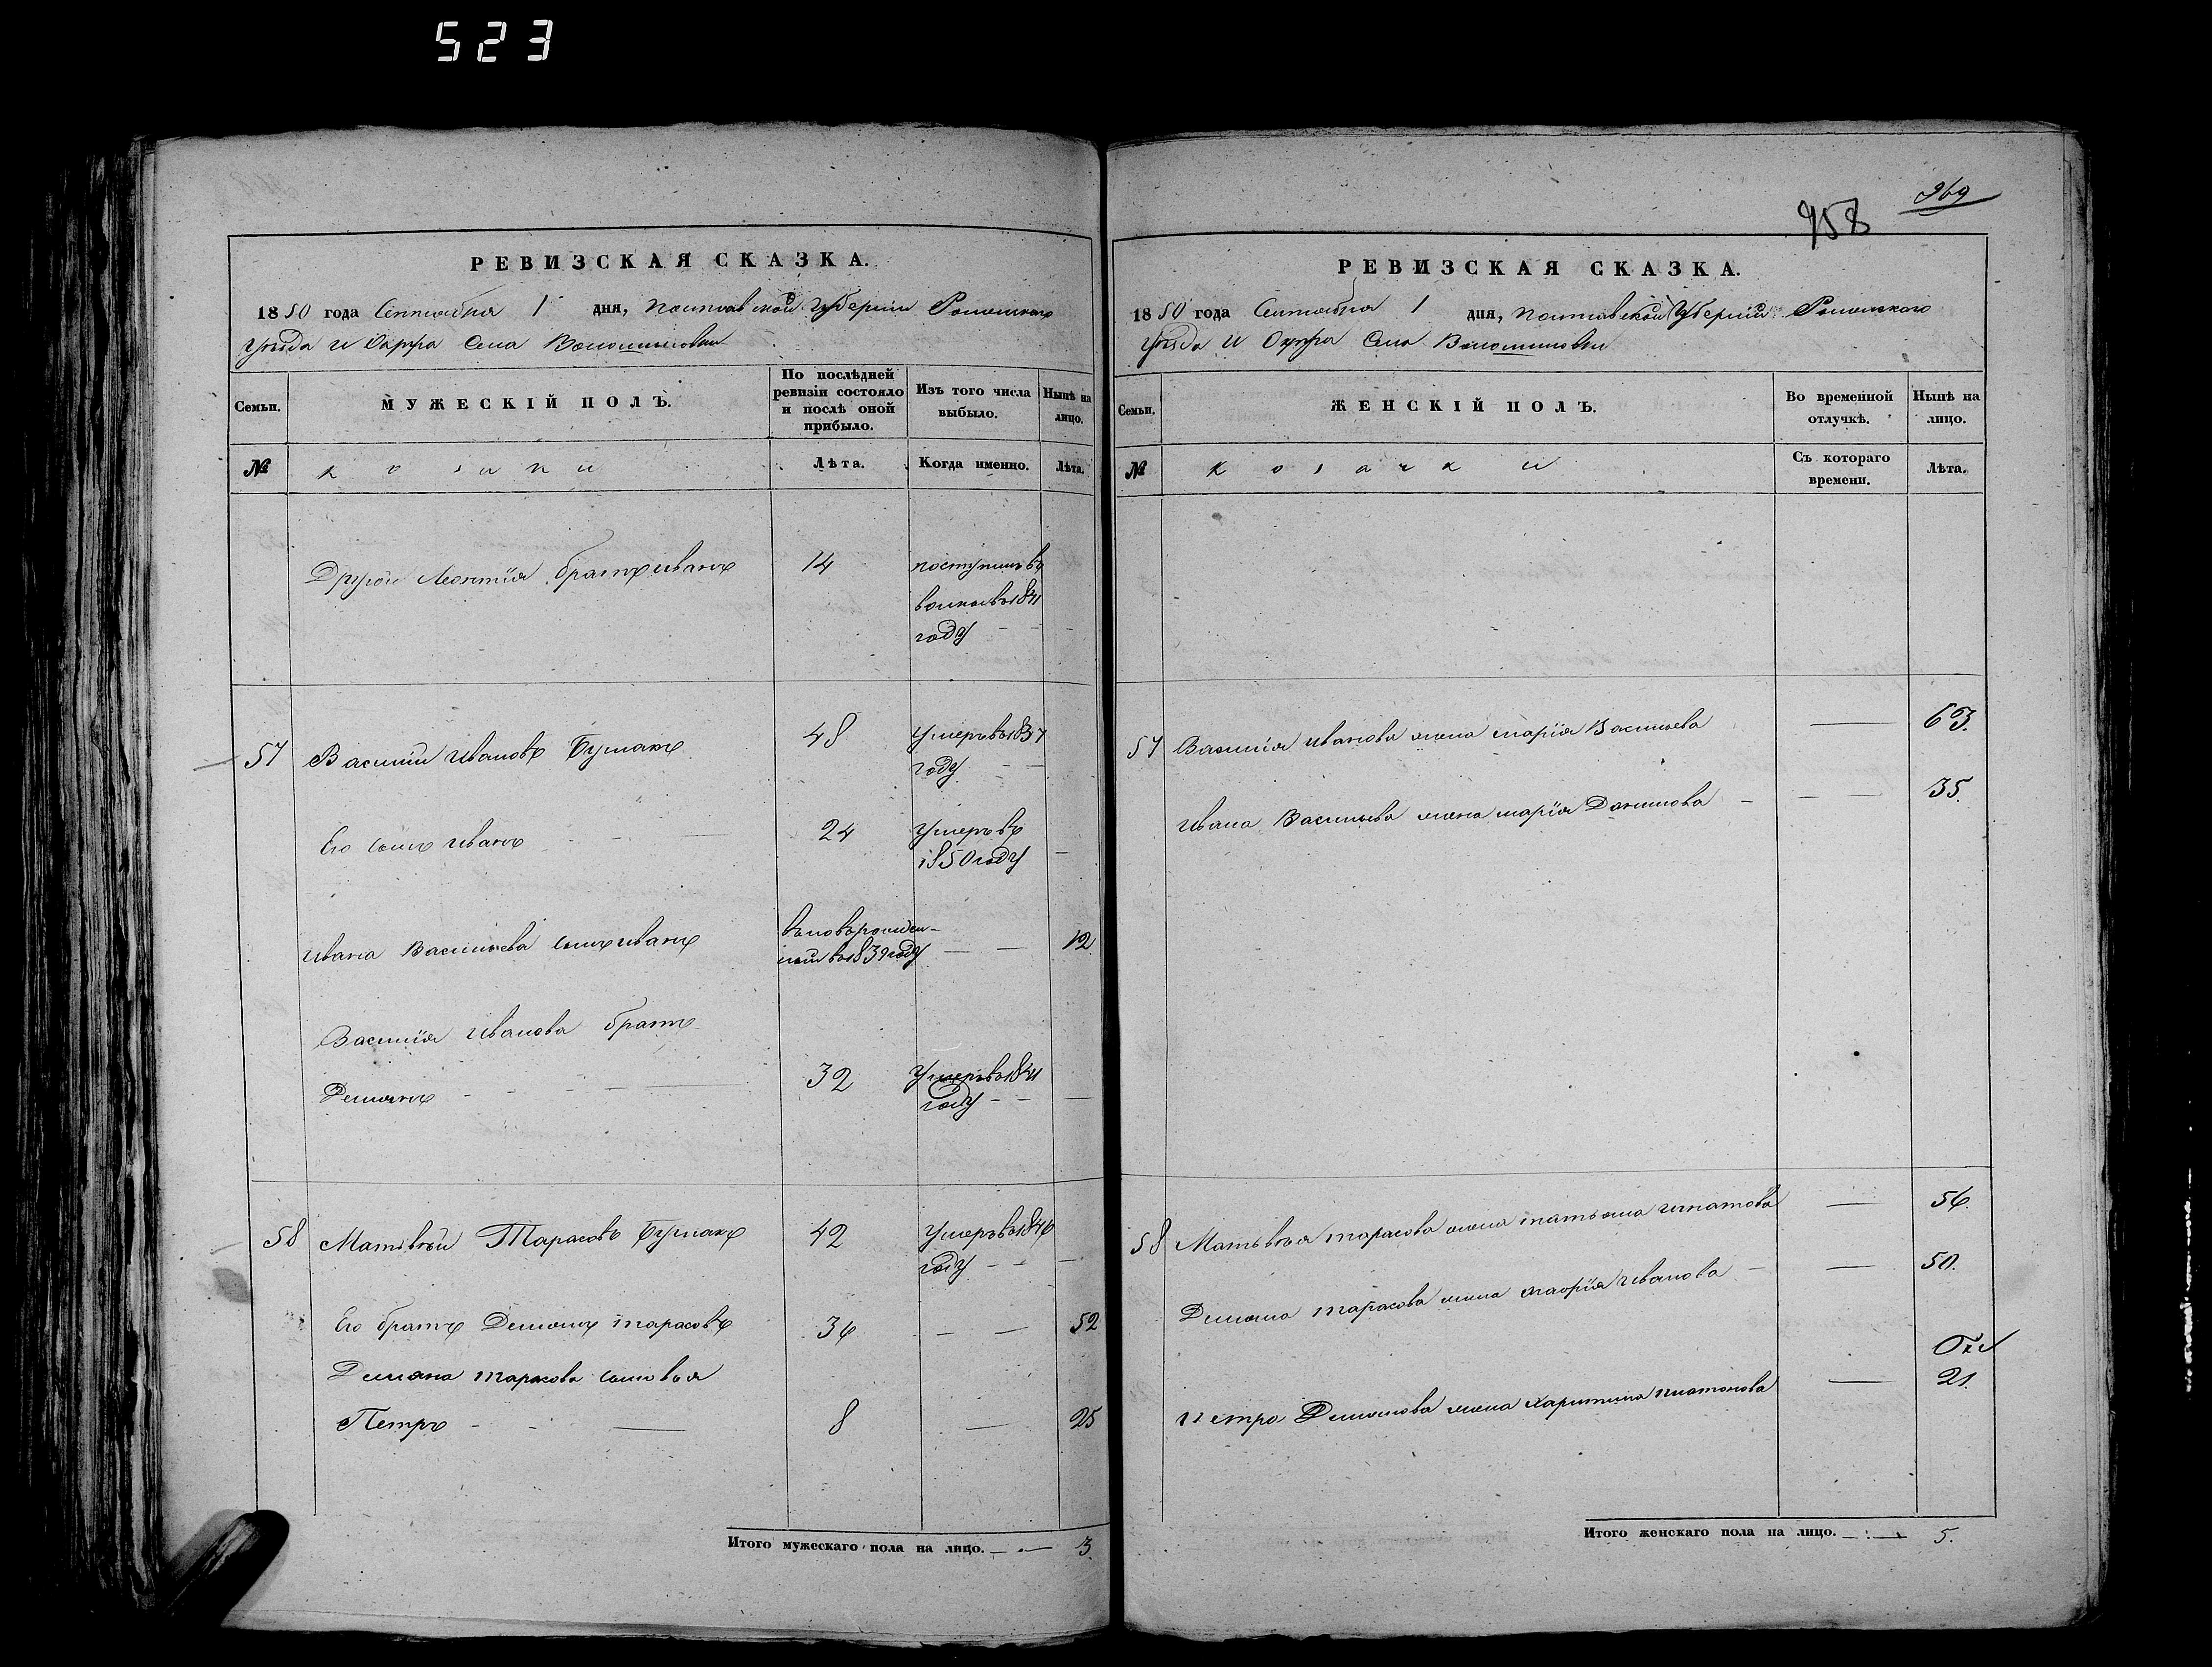 523
РЕВИЗСКАЯ СКАЗКА.
1850 года Сентября 1 дня, Полтавской Губернiи Роменского
Уѣзда и Округа Села Волошиновки
Семьи.
МУЖЕСКIЙ ПОЛЪ.
По послѣдней ревизiи состояло и послѣ оной прибыло.
Изъ того числа выбыло.
Нынѣ на лицо.
№
козаки
Лѣта.
Когда именно.
Лѣта.
Другой Леонтiя братъ Иванъ 14 поступилъ въ
въ 1841
году
57 Василiй Ивановъ Бурлакъ 48 Умеръ въ 1837
году
Его сынъ Иванъ 24 Умеръ въ
1850 году
Ивана Васильева сынъ Иванъ
12
въ 1839 году
Василiя Иванова братъ
Демянъ 32 Умеръ въ 1841
году
58 Матвѣй Тарасовъ Бурлакъ 42 Умеръ въ 1846
году
Его братъ Демянъ Тарасовъ 36 52
Демяна Тарасова сыновья
Петръ 8 25
Итого мужескаго пола на лицо. 3.
958
969
РЕВИЗСКАЯ СКАЗКА.
1850 года Сентября 1 дня, Полтавской Губернiи Роменского
Уѣзда и Округа Села Волошиновки
Семьи.
ЖЕНСКIЙ ПОЛЪ.
Во временной отлучкѣ.
Нынѣ на лицо.
№
козачки
Съ котораго времени.
Лѣта.
57 Василiя Иванова жена Марiя Васильева 63.
Ивана Васильева жена Марiя Данилова 35.
58 Матвѣя Тарасова жена Татьяна Игнатова 56.
Демяна Тарасова жена Марiя Иванова 50.
Петра Демянова жена Харитина Платонова 21.
Итого женскаго пола на лицо. 5.